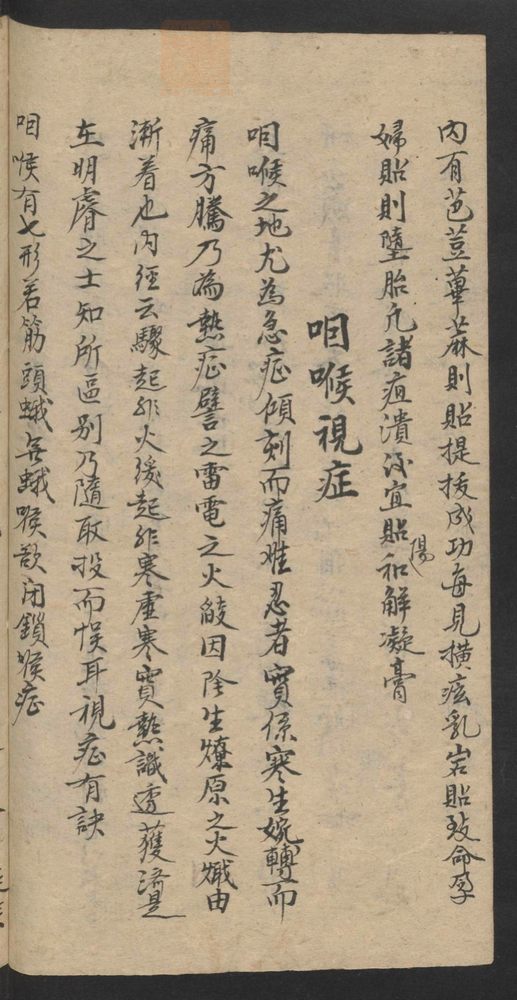 內有芭荳萆蔴則貼提拔成功每見橫痃乳岩貼致命孕
婦貼則墮胎凡諸疽潰後宜貼和陽解凝膏
咽喉視症
咽喉之地尤為急症傾刻而痛难忍者實係寒生婉轉而
痛方騰乃為熱症譬之雷電之火鼓因陰生燎原之火熾由
漸着也內徑云驟起非火緩起非寒虛寒實熱識透獲濟是
在明睿之士知所區别乃隨取投而悞耳視症有訣
咽喉有七形若筋頭蛾無蛾喉歆闭鎖喉症